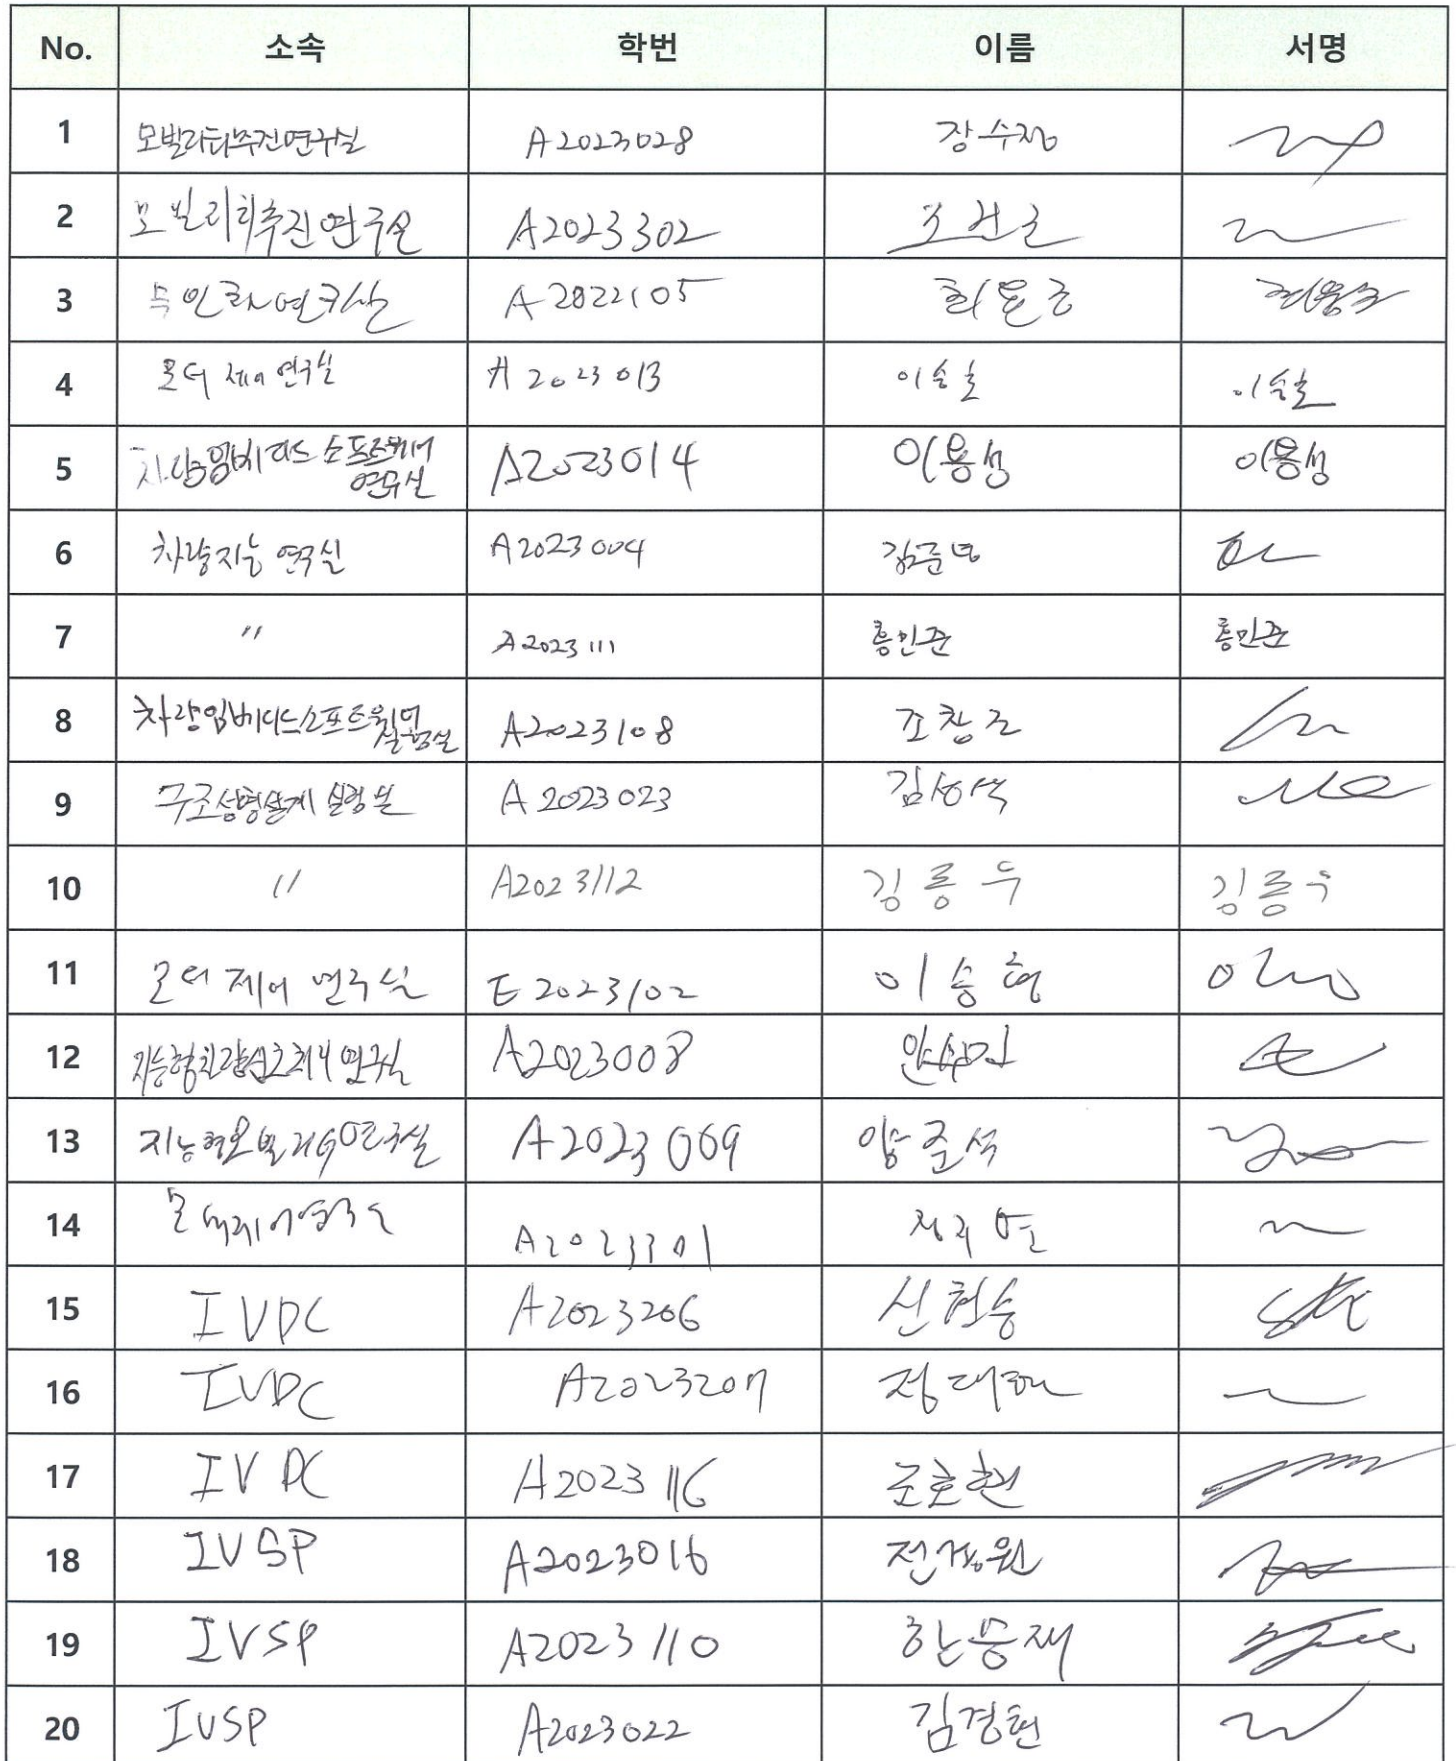 No. 소속 학번 이름 서명
1 모빌리티추진연구실 A2023028 장수정
2 모빌리티추진연구실 A2023302
3 A2022105
4 모터 제어 연구실 A2023013 이승호 이승호
5 차량임베디드 소프트웨어 A2023014 이용성 이용성
연구실
6 차량지능 연구실 A2023004 김준영
7 〃 A2023111 홍민준 홍민준
8 차량임베디드소프트웨어 A2023108
실험실
9 A2023023 김성식
10 〃 A2023112 김룡우 김룡우
11 모터 제어 연구실 E2023102 이승형
12 연구실 A2023008
13 지능형모빌리티연구실 A2023069 양준석
14 A2023301
15 IVDC A2023206 신현승
16 IVDC A2023207
17 IVDC A2023116 조호현
18 IVSP A2023016 전경원
19 IVSP A2023110 한승재
20 IVSP A2023022 김경현